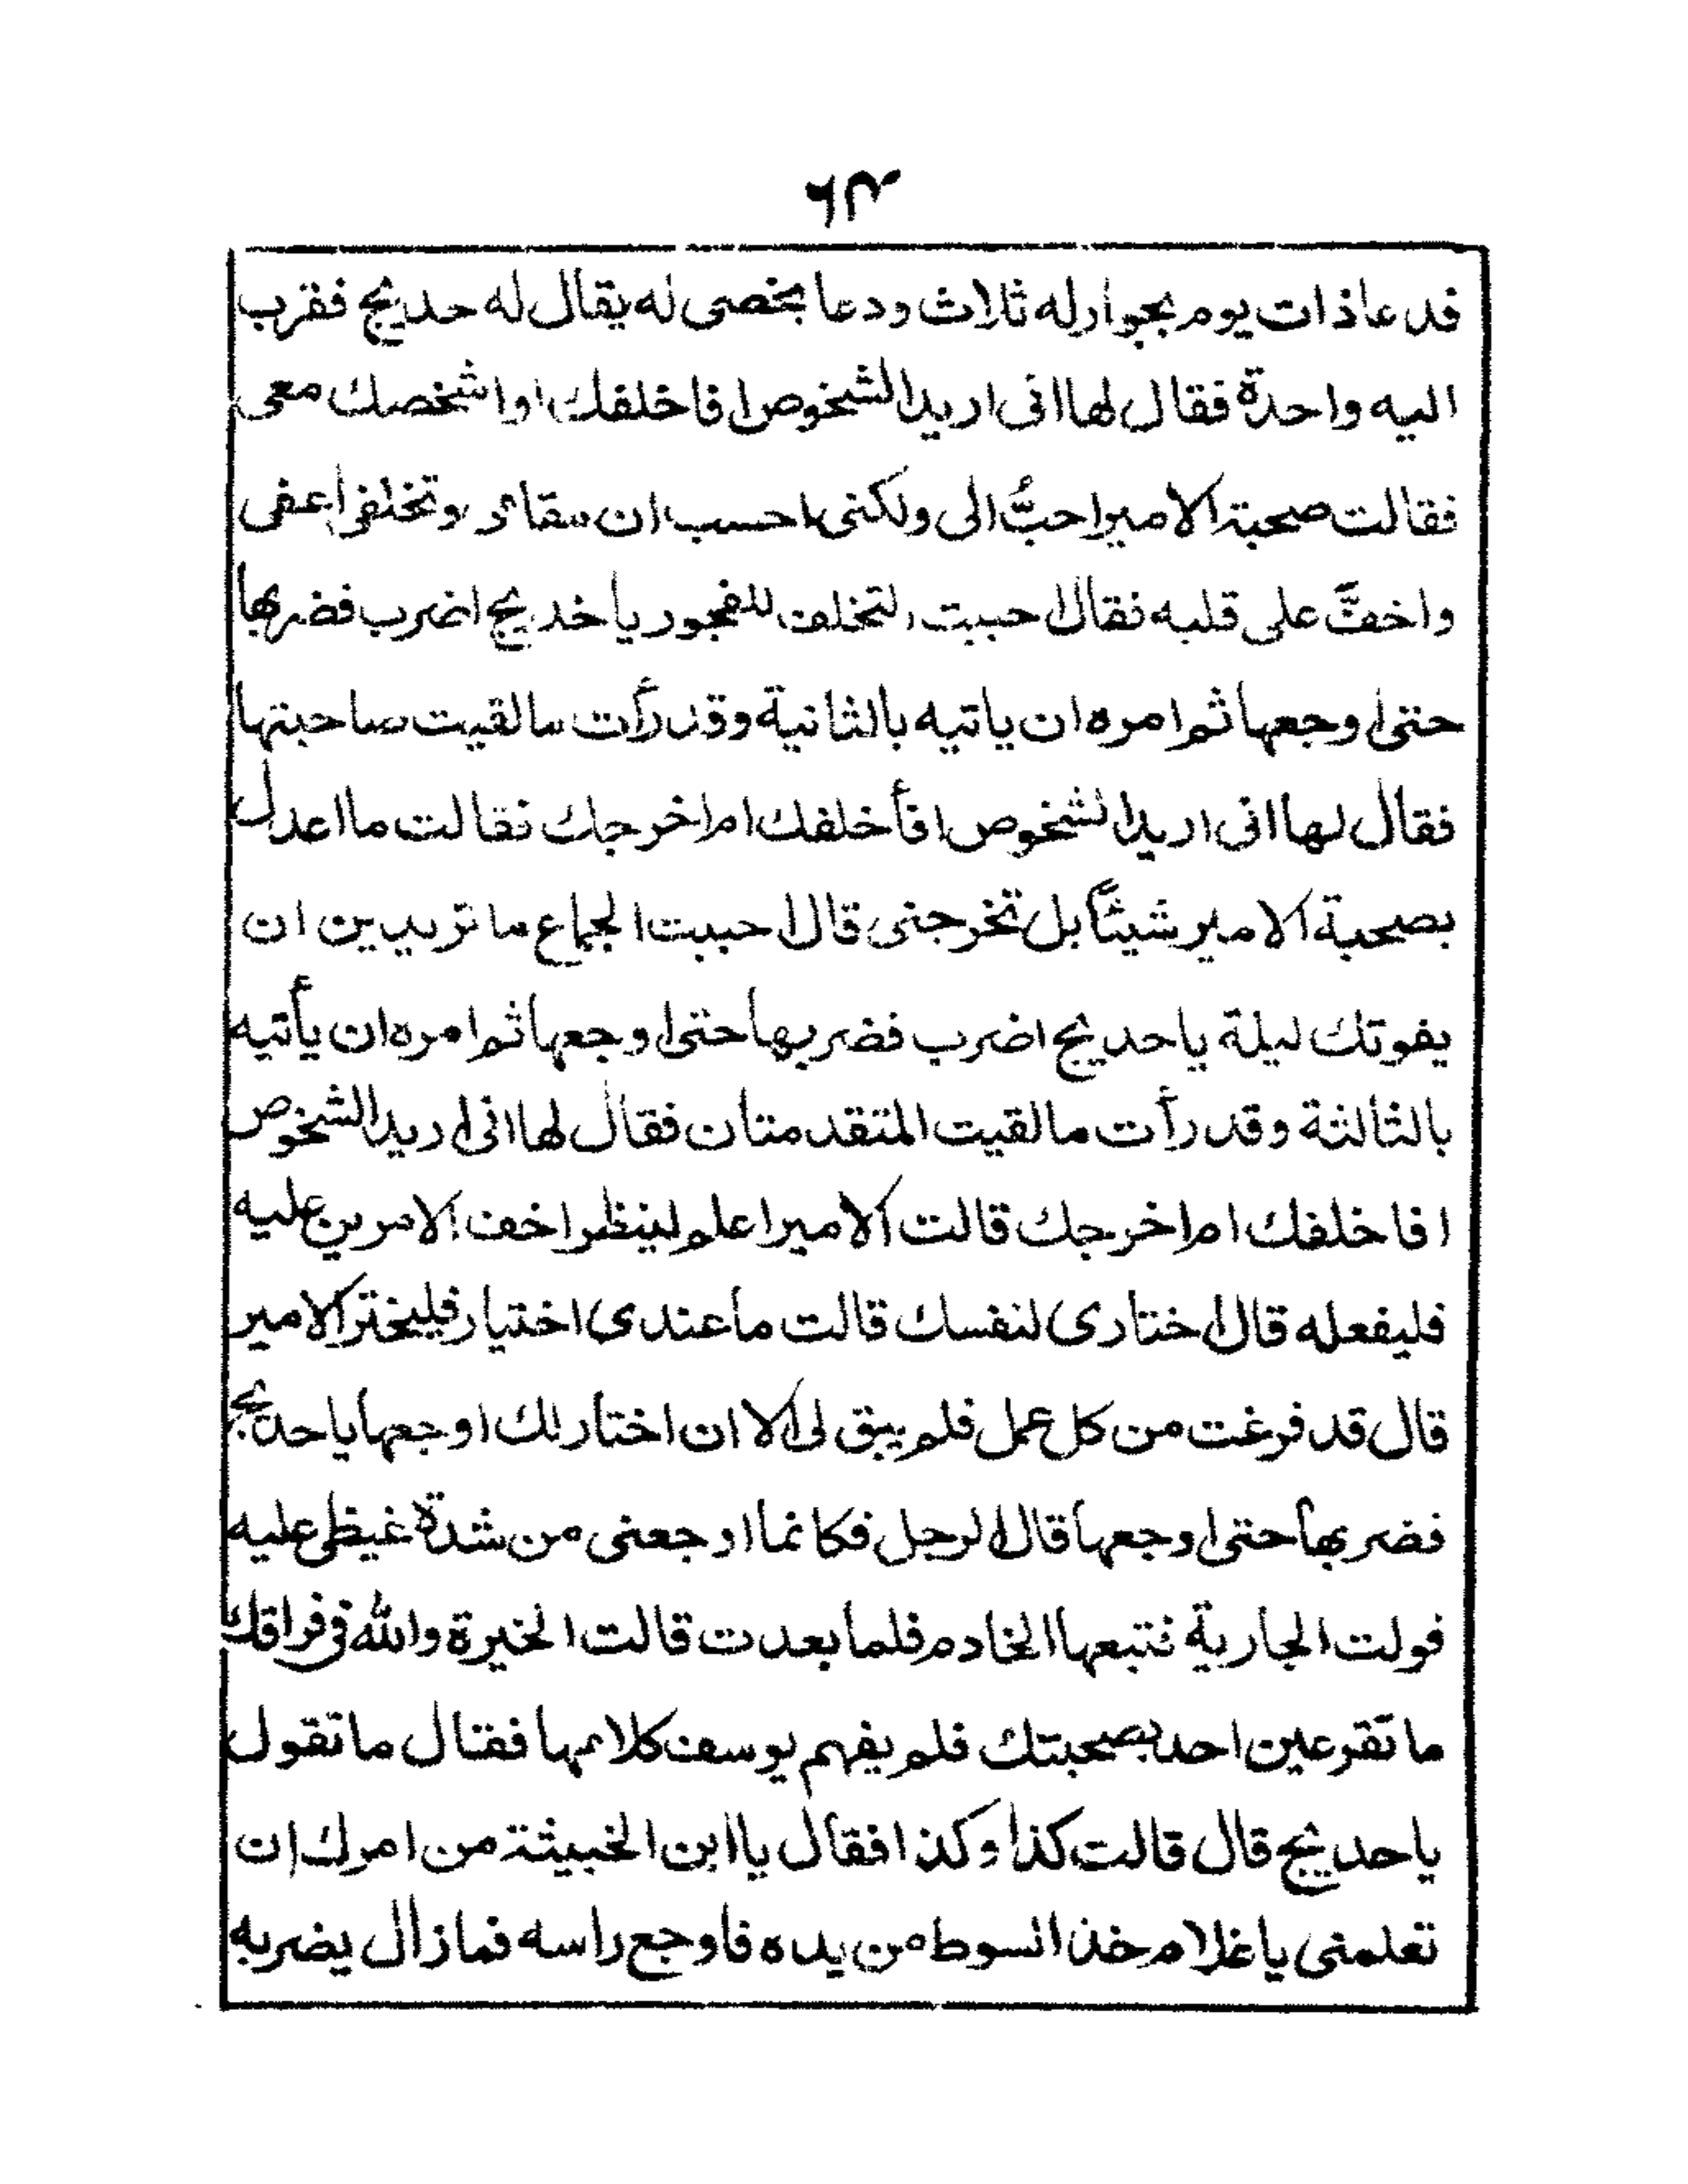 فدعا ذات يوم بجوار له ثلاث ودعا بخصى له يقال له حديج فقرب
اليه واحدة فقال لها انى اريد الشخوص افاخلفك او اشخصك معى
فقالت صحبة الامير احبُّ الى ولكنى احسب ان وتخلفى اعفى
واخفَّ على قلبه فقال احببت التخلف للفجور يا خديج اضرب فضربها
حتى اوجعها ثم امره ان ياتيه بالثانية وقد رأت ما لقيت صاحبتها
فقال لها انى اريد الشخوص افأخلفك ام اخرجك فقالت ما اعدل
بصحبة الامير شيئًا بل تخرجنى قال احببت الجماع ما تريدين ان
يفوتك ليلة يا حديج اضرب فضربها حتى اوجعها ثم امره ان يأتيه
بالثالثة وقد رأت ما لقيت المتقدمتان فقال لها انى اريد الشخوص
افاخلفك ام اخرجك قالت الامير اعلم لينظر اخف الامرين عليه
فليفعله قال اختارى لنفسك قالت ما عندى اختيار فليختر الامير
قال قد فرغت من كل عمل فلم يبق لى الا ان اختار لك اوجعها يا حديج
فضربها حتى اوجعها قال الرجل فكانما اوجعنى من شدة غيظى عليه
فولت الجارية فتبعها الخادم فلما بعدت قالت الخيرة والله فى فراقك
ما تقر عين احد بصحبتك فلم يفهم يوسف كلامها فقال ما تقول
يا حديج قال قالت كذا وكذا فقال يا ابن الخبيثة من امرك ان
تعلمنى يا غلام خذ السوط من يده فاوجع راسه فما زال يضربه